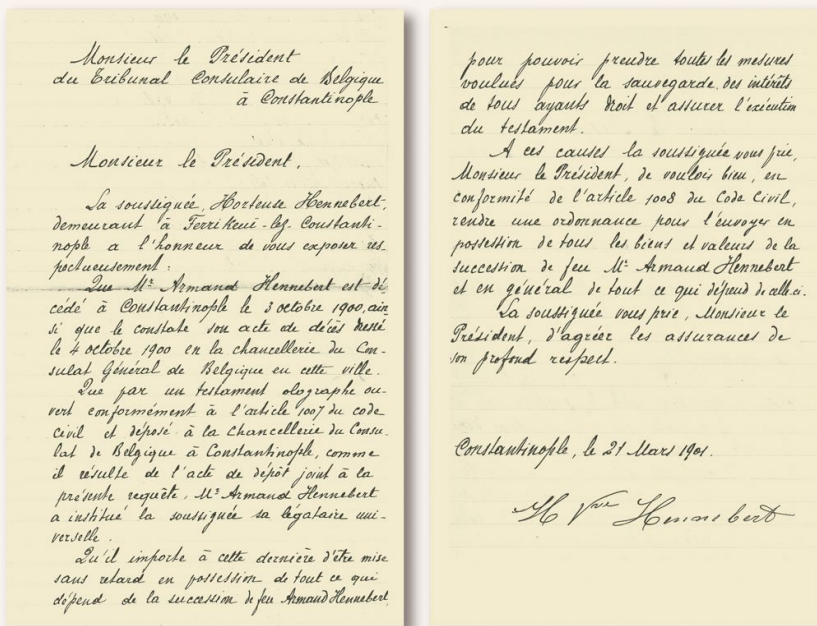 Monsieur le Président
du Tribunal Consulaire de Belgique
à Constantinople
Monsieur le Président,
La soussignée, Hortense Hennebert,
demeurant à Ferrikeui-lez-Constanti-
nople a l'honneur de vous exposer res-
pectueusement :
Que Mr Armand Hennebert est dé-
cédé à Constantinople le 3 octobre 1900, ain
si que le constate son acte de décès dressé
le 4 octobre 1900 en la chancellerie du Con-
sulat Général de Belgique en cette ville.
Que par un testament olographe ou-
vert conformément à l'article 1007 du code
civil et déposé à la Chancellerie du Consu-
lat de Belgique à Constantinople, comme
il résulte de l'acte de dépôt joint à la
présente requête, Mr Armand Hennebert
a institué la soussignée sa légataire uni-
verselle.
Qu'il importe à cette dernière d'être mise
sans retard en possession de tout ce qui
dépend de la succession de feu Armand Hennebert
pour pouvoir prendre toutes les mesures
voulues pour la sauvegarde des intérêts
de tous ayants droit et assurer l'exécution
du testament.
A ces causes la soussignée vous prie,
Monsieur le Président, de vouloir bien, en
conformité de l'article 1008 du Code Civil,
rendre une ordonnance pour l'envoyer en
possession de tous les biens et valeurs de la
succession de feu Mr Armand Hennebert
et en général de tout ce qui dépend de celle-ci.
La soussignée vous prie, Monsieur le
Président, d'agréer les assurances de
son profond respect.
Constantinople, le 21 Mars 1901.
H Vve Hennebert